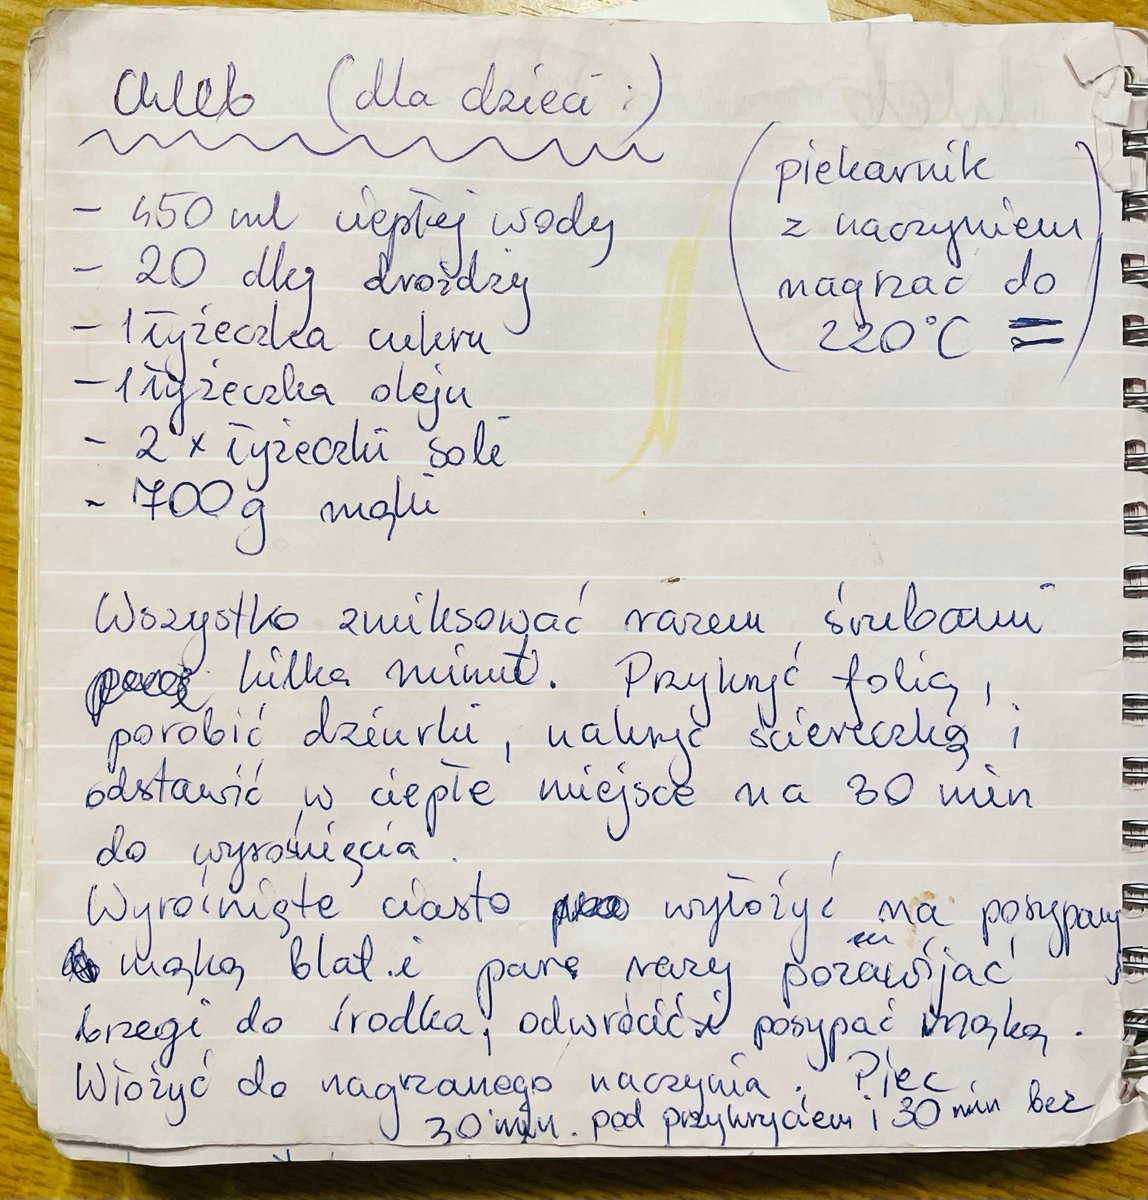 Chleb (dla dzieci :)
- 450 ml ciepłej wody
- 20 dkg drożdży
- 1 łyżeczka cukru
- 1 łyżeczka oleju
- 2 x łyżeczki soli
- 700 g mąki
(piekarnik
z naczyniem
nagrzać do
220°C =)
Wszystko zmiksować razem śrubami
kilka minut. Przykryć folią,
porobić dziurki, nakryć ściereczką i
odstawić w ciepłe miejsce na 30 min
do wyrośnięcia.
Wyrośnięte ciasto wyłożyć na posypany
mąką blat i parę razy pozawijać
brzegi do środka, odwrócić i posypać mąką.
Włożyć do nagrzanego naczynia. Piec
30 min. pod przykryciem i 30 min bez